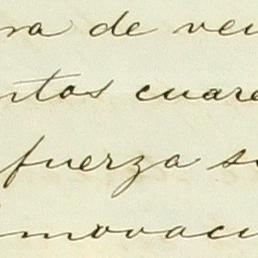 ra de vei
ntos cuare
fuerza su
innovaci